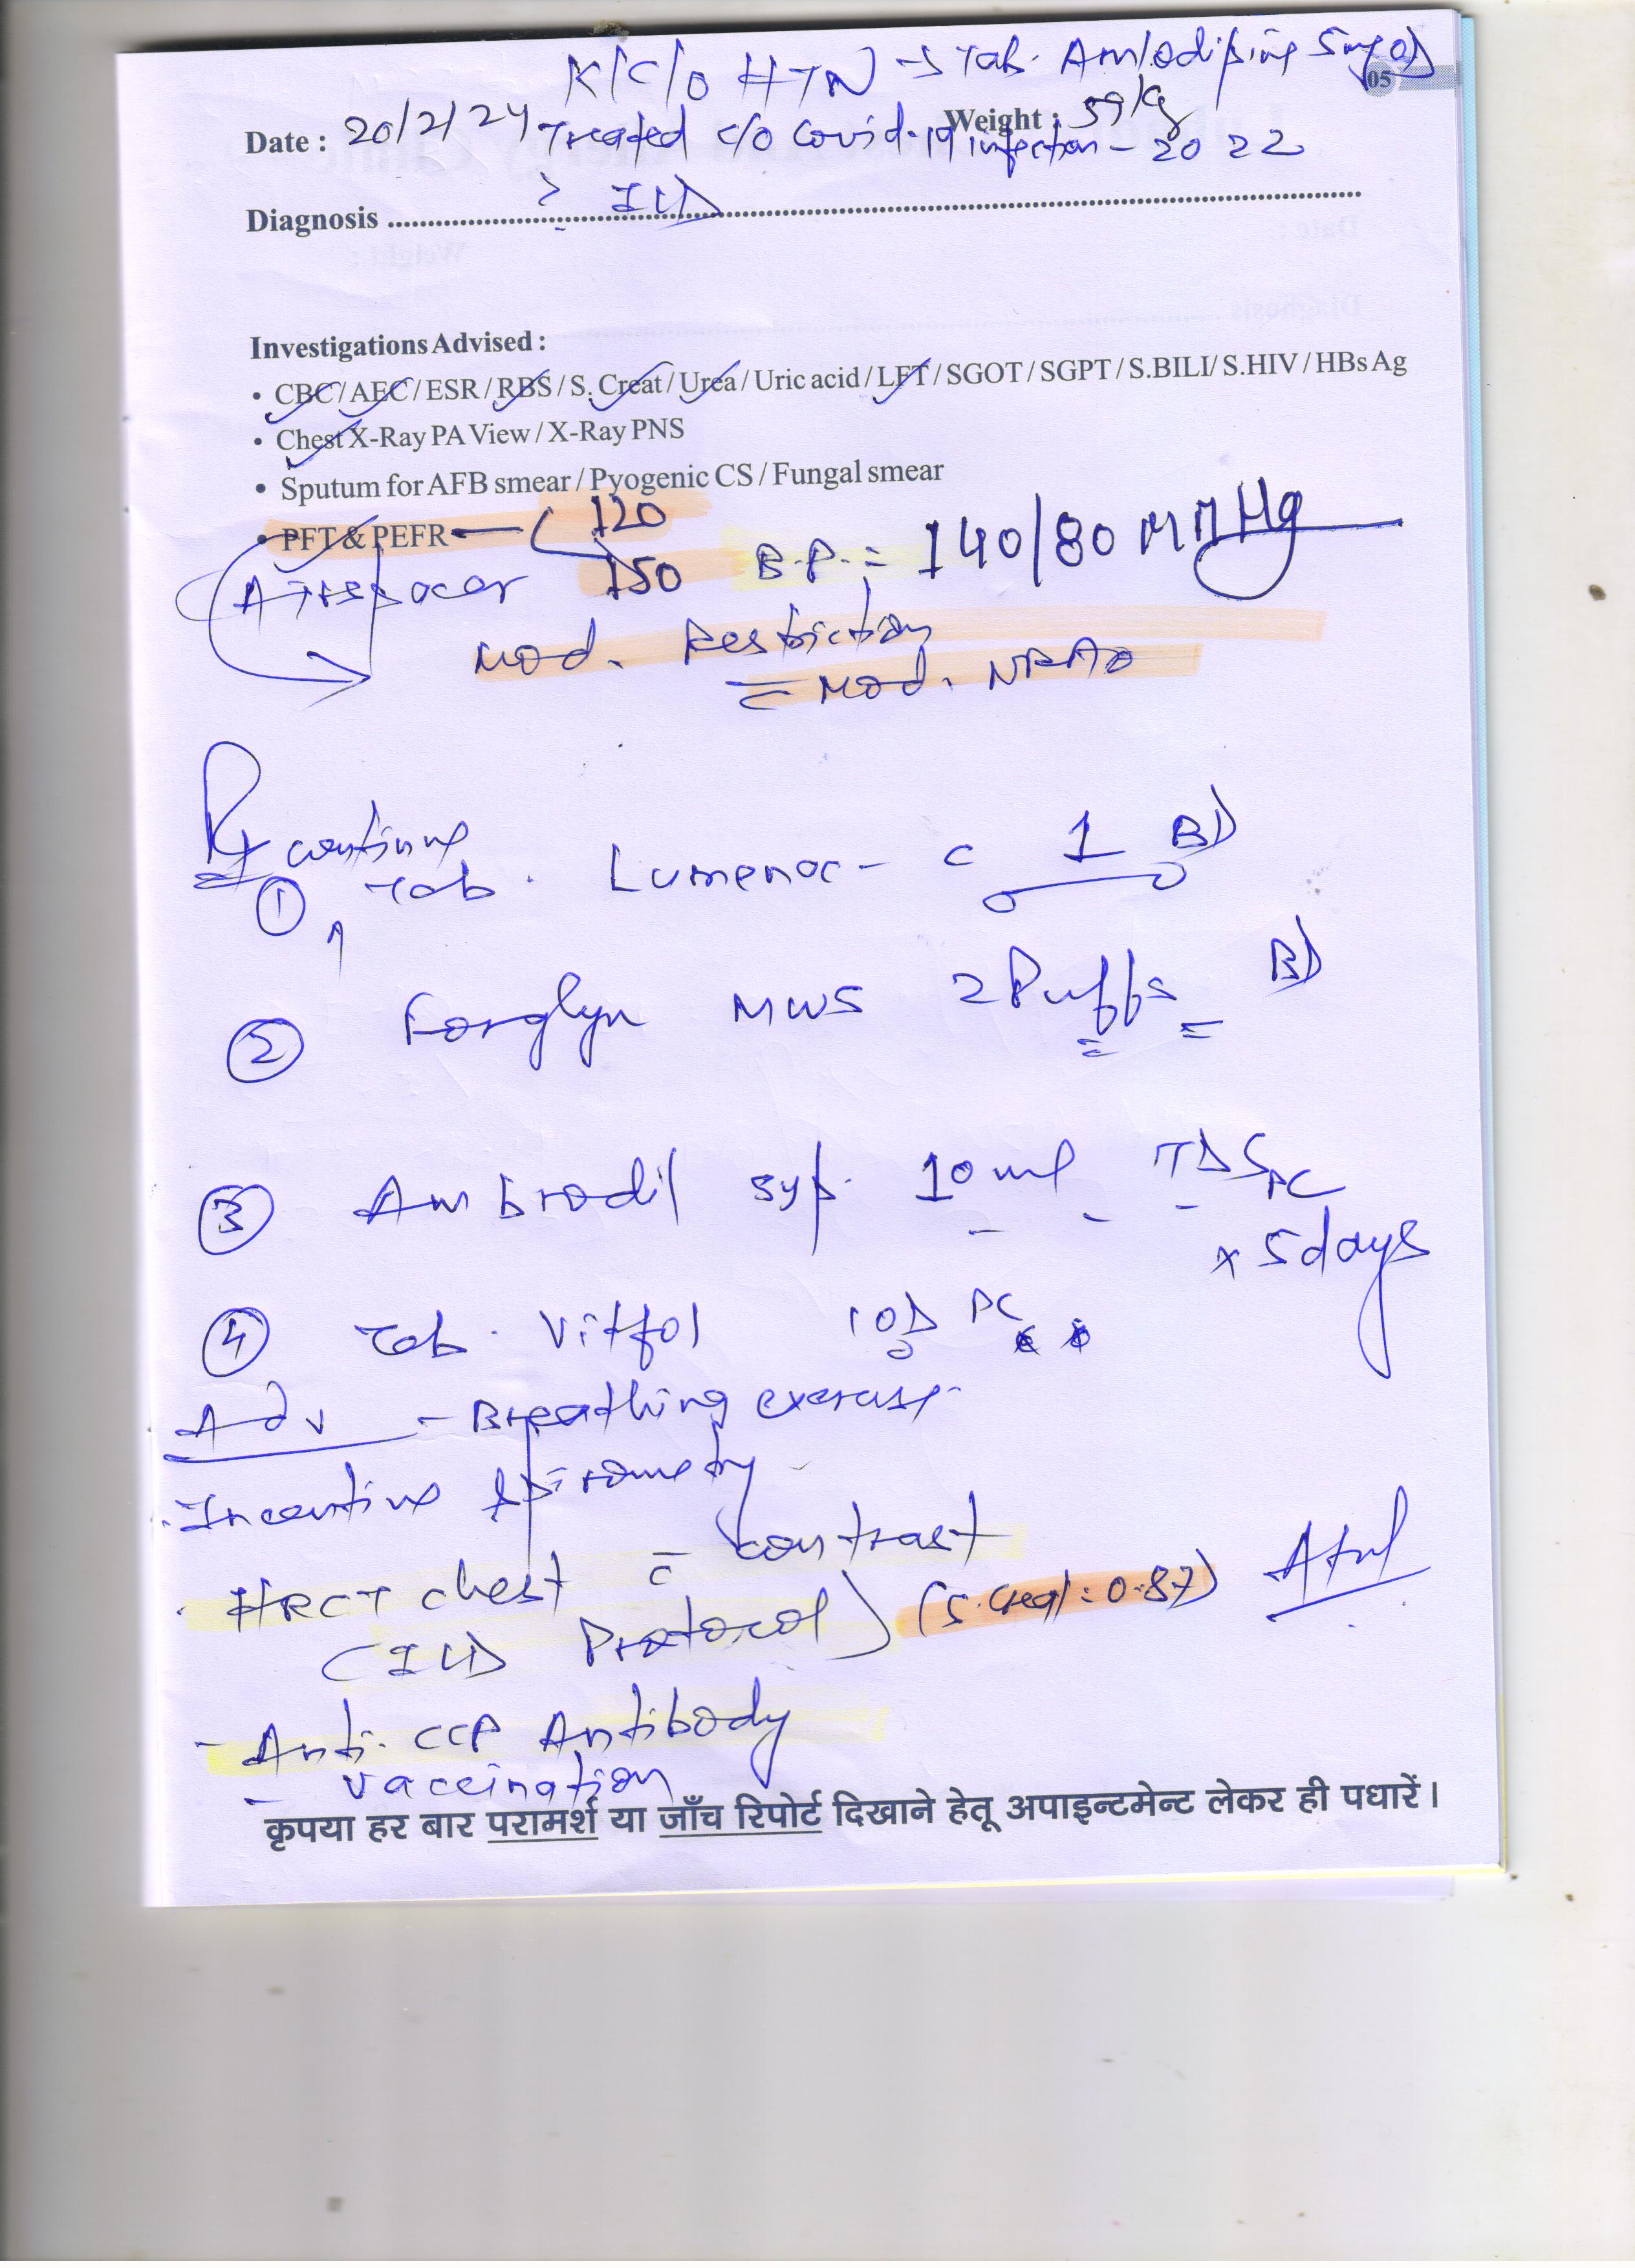 K/C/O HTN → Tab. Amlodipine 5mg OD
05
Date : 20/2/24 Weight : 59 kg
Treated c/o Covid-19 infection - 2022
Diagnosis ? ILD
Investigations Advised :
• CBC / AEC / ESR / RBS / S. Creat / Urea / Uric acid / LFT / SGOT / SGPT / S.BILI/ S.HIV / HBs Ag
• Chest X-Ray PA View / X-Ray PNS
• Sputum for AFB smear / Pyogenic CS / Fungal smear
• PFT & PEFR 120
150 B.P. = 140/80 MMHg
Mod. Restriction
= Mod. NRAO
Rx continue
① Tab. Lumenac - C 1 BD
② Forglyn MWS 2 Puffs BD
③ Ambrodil syp. 10 ml TDS PC
x 5 days
④ Tab. Vitfol 1 OD PC
Adv - Breathing exercise
. Incentive spirometry
. HRCT chest c̄ contrast
(ILD Protocol) (S. Creat : 0.87)
- Anti. CCP Antibody
- vaccination
कृपया हर बार परामर्श या जाँच रिपोर्ट दिखाने हेतू अपाइन्टमेन्ट लेकर ही पधारें।